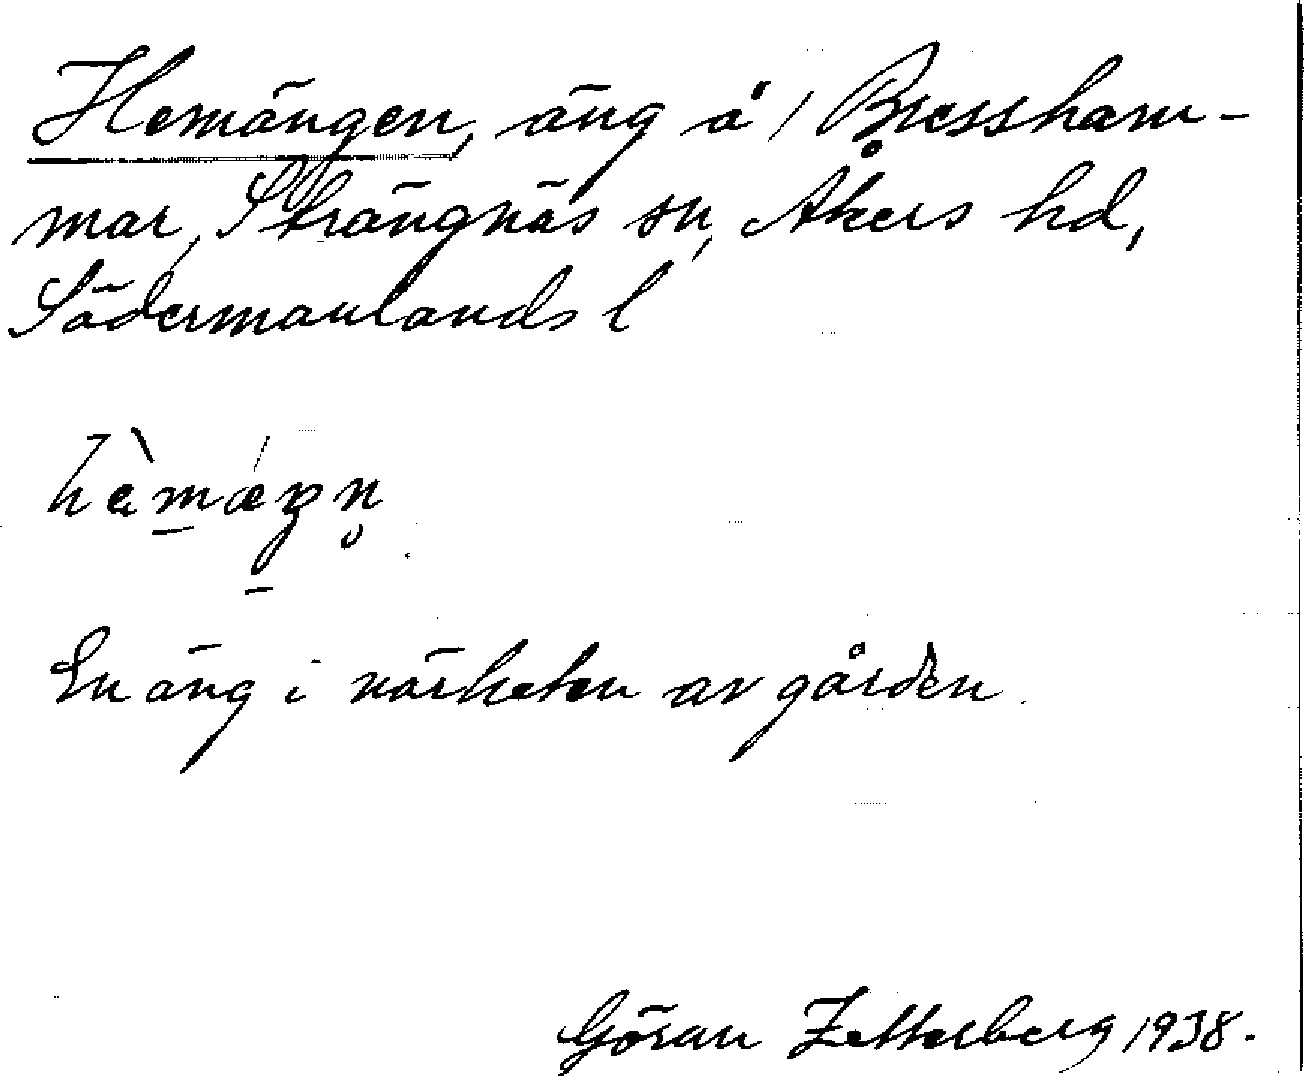 Hemängen, äng å / Bressham-
mar, Strängnäs sn, Åkers hd,
Södermanlands l
En äng i närheten av gården.
Göran Zetterberg 1938.